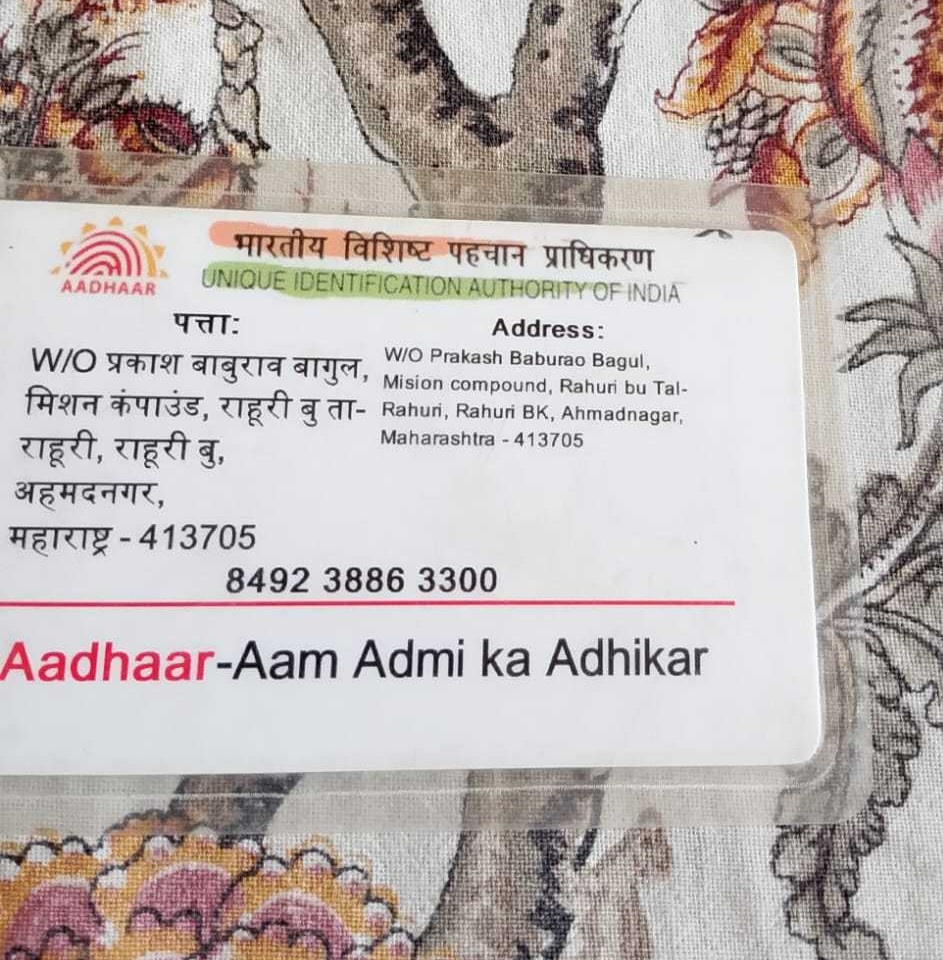 AADHAAR
भारतीय विशिष्ट पहचान प्राधिकरण
UNIQUE IDENTIFICATION AUTHORITY OF INDIA
पत्ता:
W/O प्रकाश बाबुराव बागुल,
मिशन कंपाउंड, राहूरी बु ता-
राहूरी, राहूरी बु,
अहमदनगर,
महाराष्ट्र - 413705
Address:
W/O Prakash Baburao Bagul,
Mision compound, Rahuri bu Tal-
Rahuri, Rahuri BK, Ahmadnagar,
Maharashtra - 413705
8492 3886 3300
Aadhaar-Aam Admi ka Adhikar